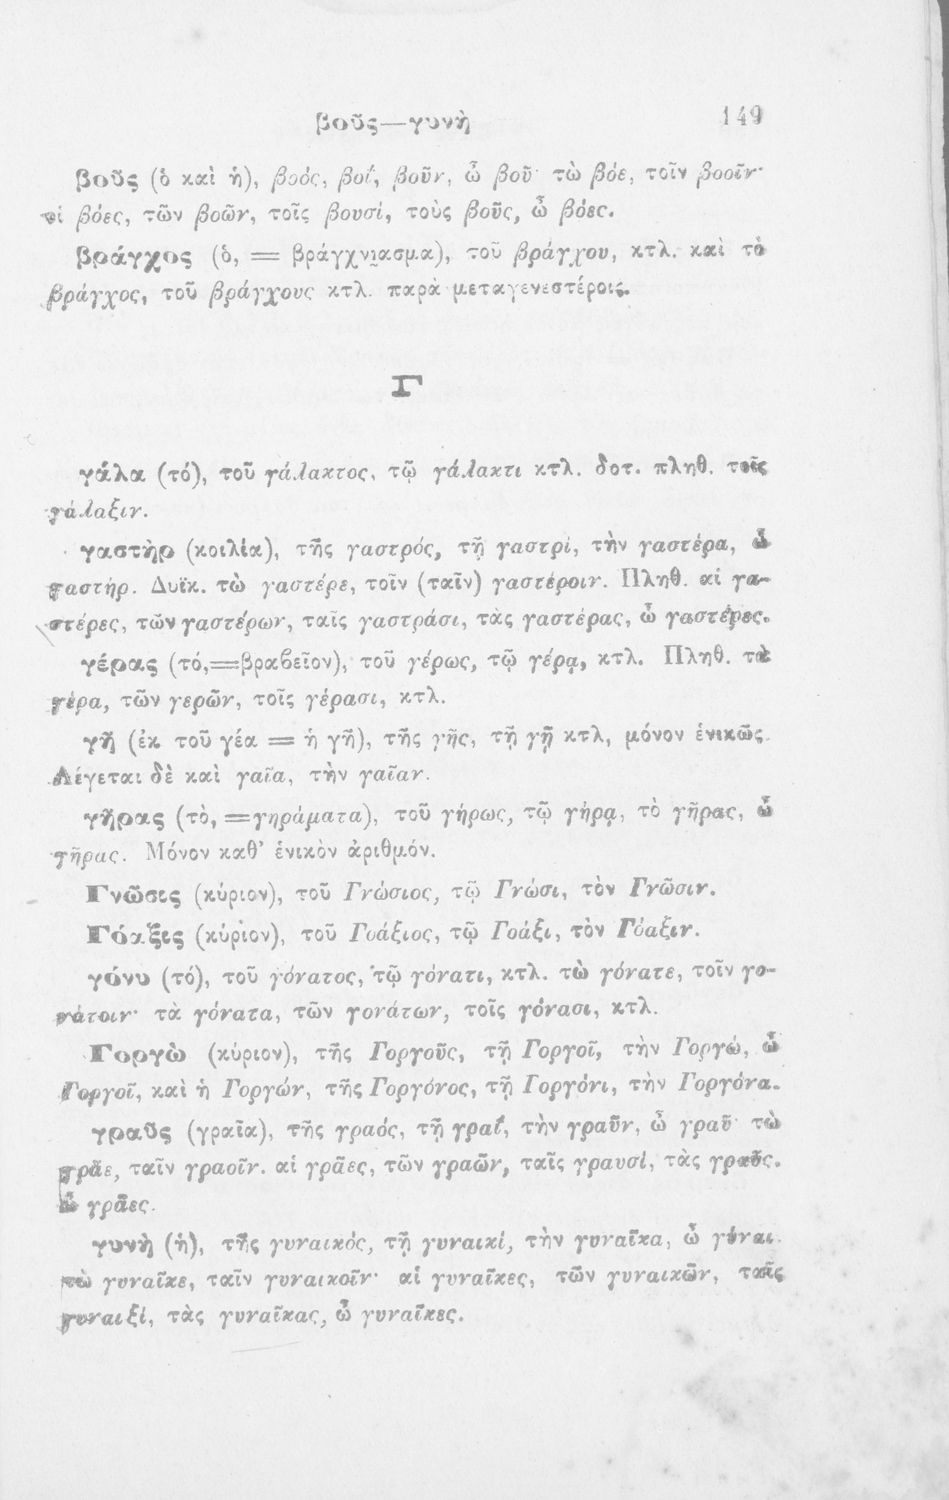 βοῦς—γυνὴ 149
βοῦς (ὁ καὶ ἡ), βοός, βοΐ, βοῦν, ὦ βοῦ· τὼ βόε, τοῖν βοοῖν·
οἱ βόες, τῶν βοῶν, τοῖς βουσί, τοὺς βοῦς, ὦ βόες.
βράγχος (ὁ, = βράγχνιασμα), τοῦ βράγχου, κτλ. καὶ τὸ
βράγχος, τοῦ βράγχους κτλ. παρὰ μεταγενεστέροις.
Γ
γάλα (τό), τοῦ γάλακτος, τῷ γάλακτι κτλ. δοτ. πληθ. τοῖς
γάλαξιν.
γαστὴρ (κοιλία), τῆς γαστρός, τῇ γαστρί, τὴν γαστέρα, ὦ
γαστήρ. Δυϊκ. τὼ γαστέρε, τοῖν (ταῖν) γαστέροιν. Πληθ. αἱ γα-
στέρες, τῶν γαστέρων, ταῖς γαστράσι, τὰς γαστέρας, ὦ γαστέρες.
γέρας (τό,=βραβεῖον), τοῦ γέρως, τῷ γέρᾳ, κτλ. Πληθ. τὰ
γέρα, τῶν γερῶν, τοῖς γέρασι, κτλ.
γῆ (ἐκ τοῦ γέα = ἡ γῆ), τῆς γῆς, τῇ γῇ κτλ, μόνον ἑνικῶς.
Λέγεται δὲ καὶ γαῖα, τὴν γαῖαν.
γῆρας (τὸ, =γηράματα), τοῦ γήρως, τῷ γήρᾳ, τὸ γῆρας, ὦ
γῆρας. Μόνον καθ’ ἑνικὸν ἀριθμόν.
Γνῶσις (κύριον), τοῦ Γνώσιος, τῷ Γνώσι, τὸν Γνῶσιν.
Γόαξις (κύριον), τοῦ Γοάξιος, τῷ Γοάξι, τὸν Γόαξιν.
γόνυ (τό), τοῦ γόνατος, τῷ γόνατι, κτλ. τὼ γόνατε, τοῖν γο-
νάτοιν· τὰ γόνατα, τῶν γονάτων, τοῖς γόνασι, κτλ.
Γοργὼ (κύριον), τῆς Γοργοῦς, τῇ Γοργοῖ, τὴν Γοργώ, ὦ
Γοργοῖ, καὶ ἡ Γοργών, τῆς Γοργόνος, τῇ Γοργόνι, τὴν Γοργόνα.
γραῦς (γραῖα), τῆς γραός, τῇ γραΐ, τὴν γραῦν, ὦ γραῦ· τὼ
γρᾶε, ταῖν γραοῖν. αἱ γρᾶες, τῶν γραῶν, ταῖς γραυσί, τὰς γραῦς.
ὦ γρᾶες.
γυνὴ (ἡ), τῆς γυναικός, τῇ γυναικί, τὴν γυναῖκα, ὦ γύναι.
τὼ γυναῖκε, ταῖν γυναικοῖν· αἱ γυναῖκες, τῶν γυναικῶν, ταῖς
γυναιξί, τὰς γυναῖκας, ὦ γυναῖκες.